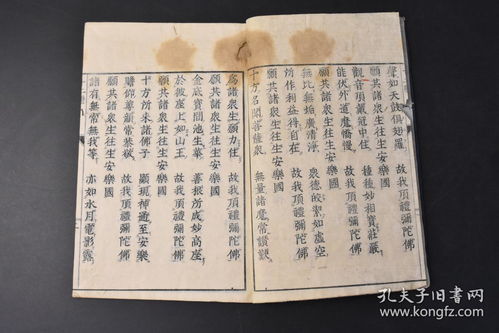 聲如天鼓俱翅羅 故我頂禮彌陀佛
願共諸衆生往生安樂國
觀音頂戴冠中住 種種妙相寶莊嚴
能伏外道魔憍慢 故我頂禮彌陀佛
願共諸衆生往生安樂國
無比無垢廣清淨 衆德皎潔如虛空
所作利益得自在 故我頂禮彌陀佛
十方名聞菩薩衆 無量諸魔常讚歎
爲諸衆生願力住 故我頂禮彌陀佛
願共諸衆生往生安樂國
金底寶間池生華 善根所成妙高座
於彼座上如山王 故我頂禮彌陀佛
願共諸衆生往生安樂國
十方所來諸佛子 顯現神通至安樂
瞻仰尊顏常恭敬 故我頂禮彌陀佛
願共諸衆生往生安樂國
諸有無常無我等 亦如水月電影露
孔夫子旧书网
www.kongfz.com